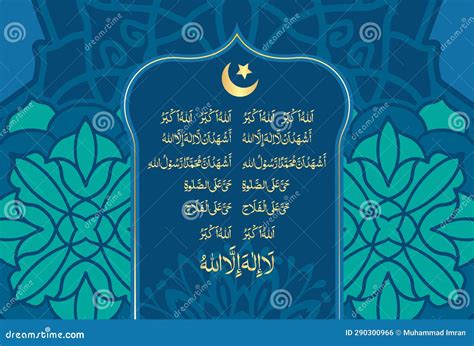 اَللهُ اَكْبَرُ اَللهُ اَكْبَرُ اَللهُ اَكْبَرُ اَللهُ اَكْبَرُ
اَشْهَدُ اَنْ لَا اِلٰهَ اِلَّا اللهُ اَشْهَدُ اَنْ لَا اِلٰهَ اِلَّا اللهُ
اَشْهَدُ اَنَّ مُحَمَّدًا رَّسُوْلُ اللهِ اَشْهَدُ اَنَّ مُحَمَّدًا رَّسُوْلُ اللهِ
حَيَّ عَلَى الصَّلٰوةِ حَيَّ عَلَى الصَّلٰوةِ
حَيَّ عَلَى الْفَلَاحِ حَيَّ عَلَى الْفَلَاحِ
اَللهُ اَكْبَرُ اَللهُ اَكْبَرُ
لَا إِلٰهَ إِلَّا اللهُ
dreamstime.com
ID 290300966 © Muhammad Imran